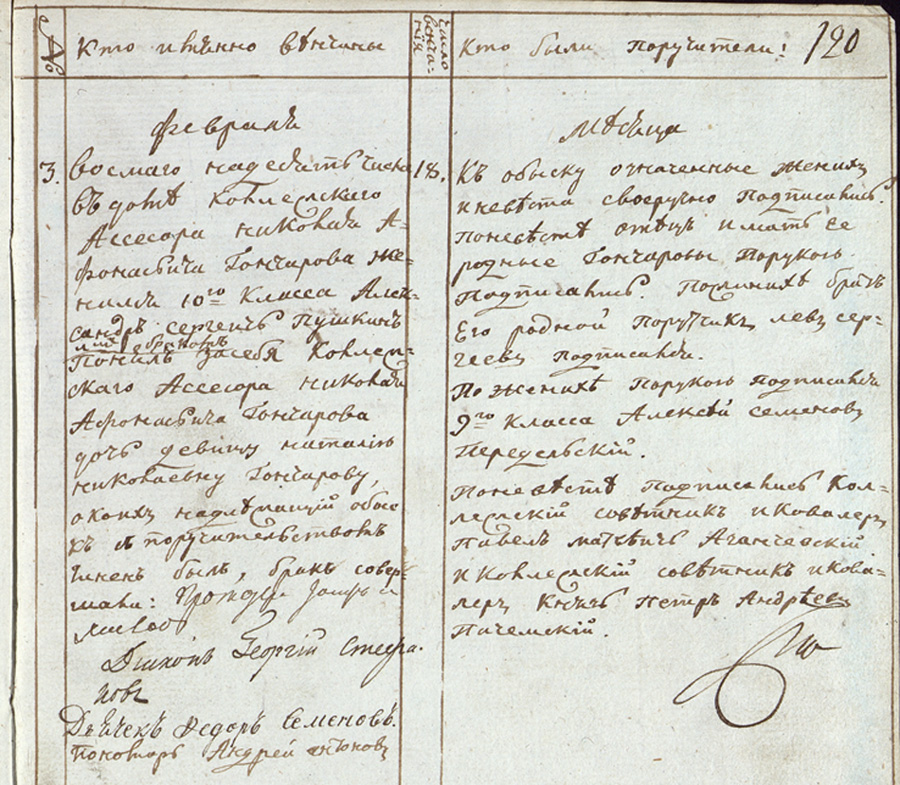 №
Кто именно вѣнчаны
число
венча-
нія
Кто были поручители:
120
февраля
мѣсяца
3.
восмаго надесѧть числа
18.
въ домѣ Коллежскаго
Ассесора николая А-
фонасьича Гончарова же-
нился 10го класса Алек-
сандръ сергеичъ Пушкинъ
Понялъ засебя Коллеж-
скаго Ассесора николая
Афонасьича Гончарова
дочь девицу наталію
николаевну Гончарову,
окоихъ надлежащій обыс-
къ съ поручительствомъ
чиненъ былъ, бракъ совер-
шали: Протоіерей Іосифъ
Михаиловъ
Дьяконъ Георгій Стефа-
новъ
Дьячекъ Федоръ Семеновъ.
пономарь Андрей
Къ обыску означенные женихъ
и невѣста своеручно подписались.
Поневѣстѣ отецъ и мать Ее
родные Гончаровы порукою
подписались. По женихѣ братъ
Его родной Поручикъ левъ сер-
геевъ подписался.
По женихѣ порукою подписался
9го класса Алексѣй семеновъ
Передельскій.
Поневѣстѣ подписались Кол-
лежскій совѣтникъ и кавалеръ
Павелъ матвѣичъ Азанчевскій
и Коллежскій совѣтникъ и кава-
леръ Князь Петръ Андрѣевъ